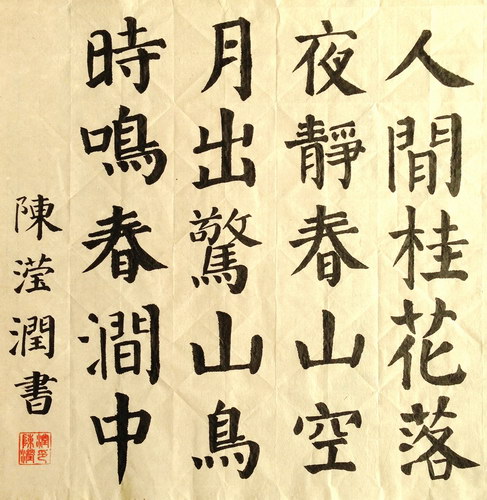 人間桂花落
夜靜春山空
月出驚山鳥
時鳴春澗中
陳滢潤書